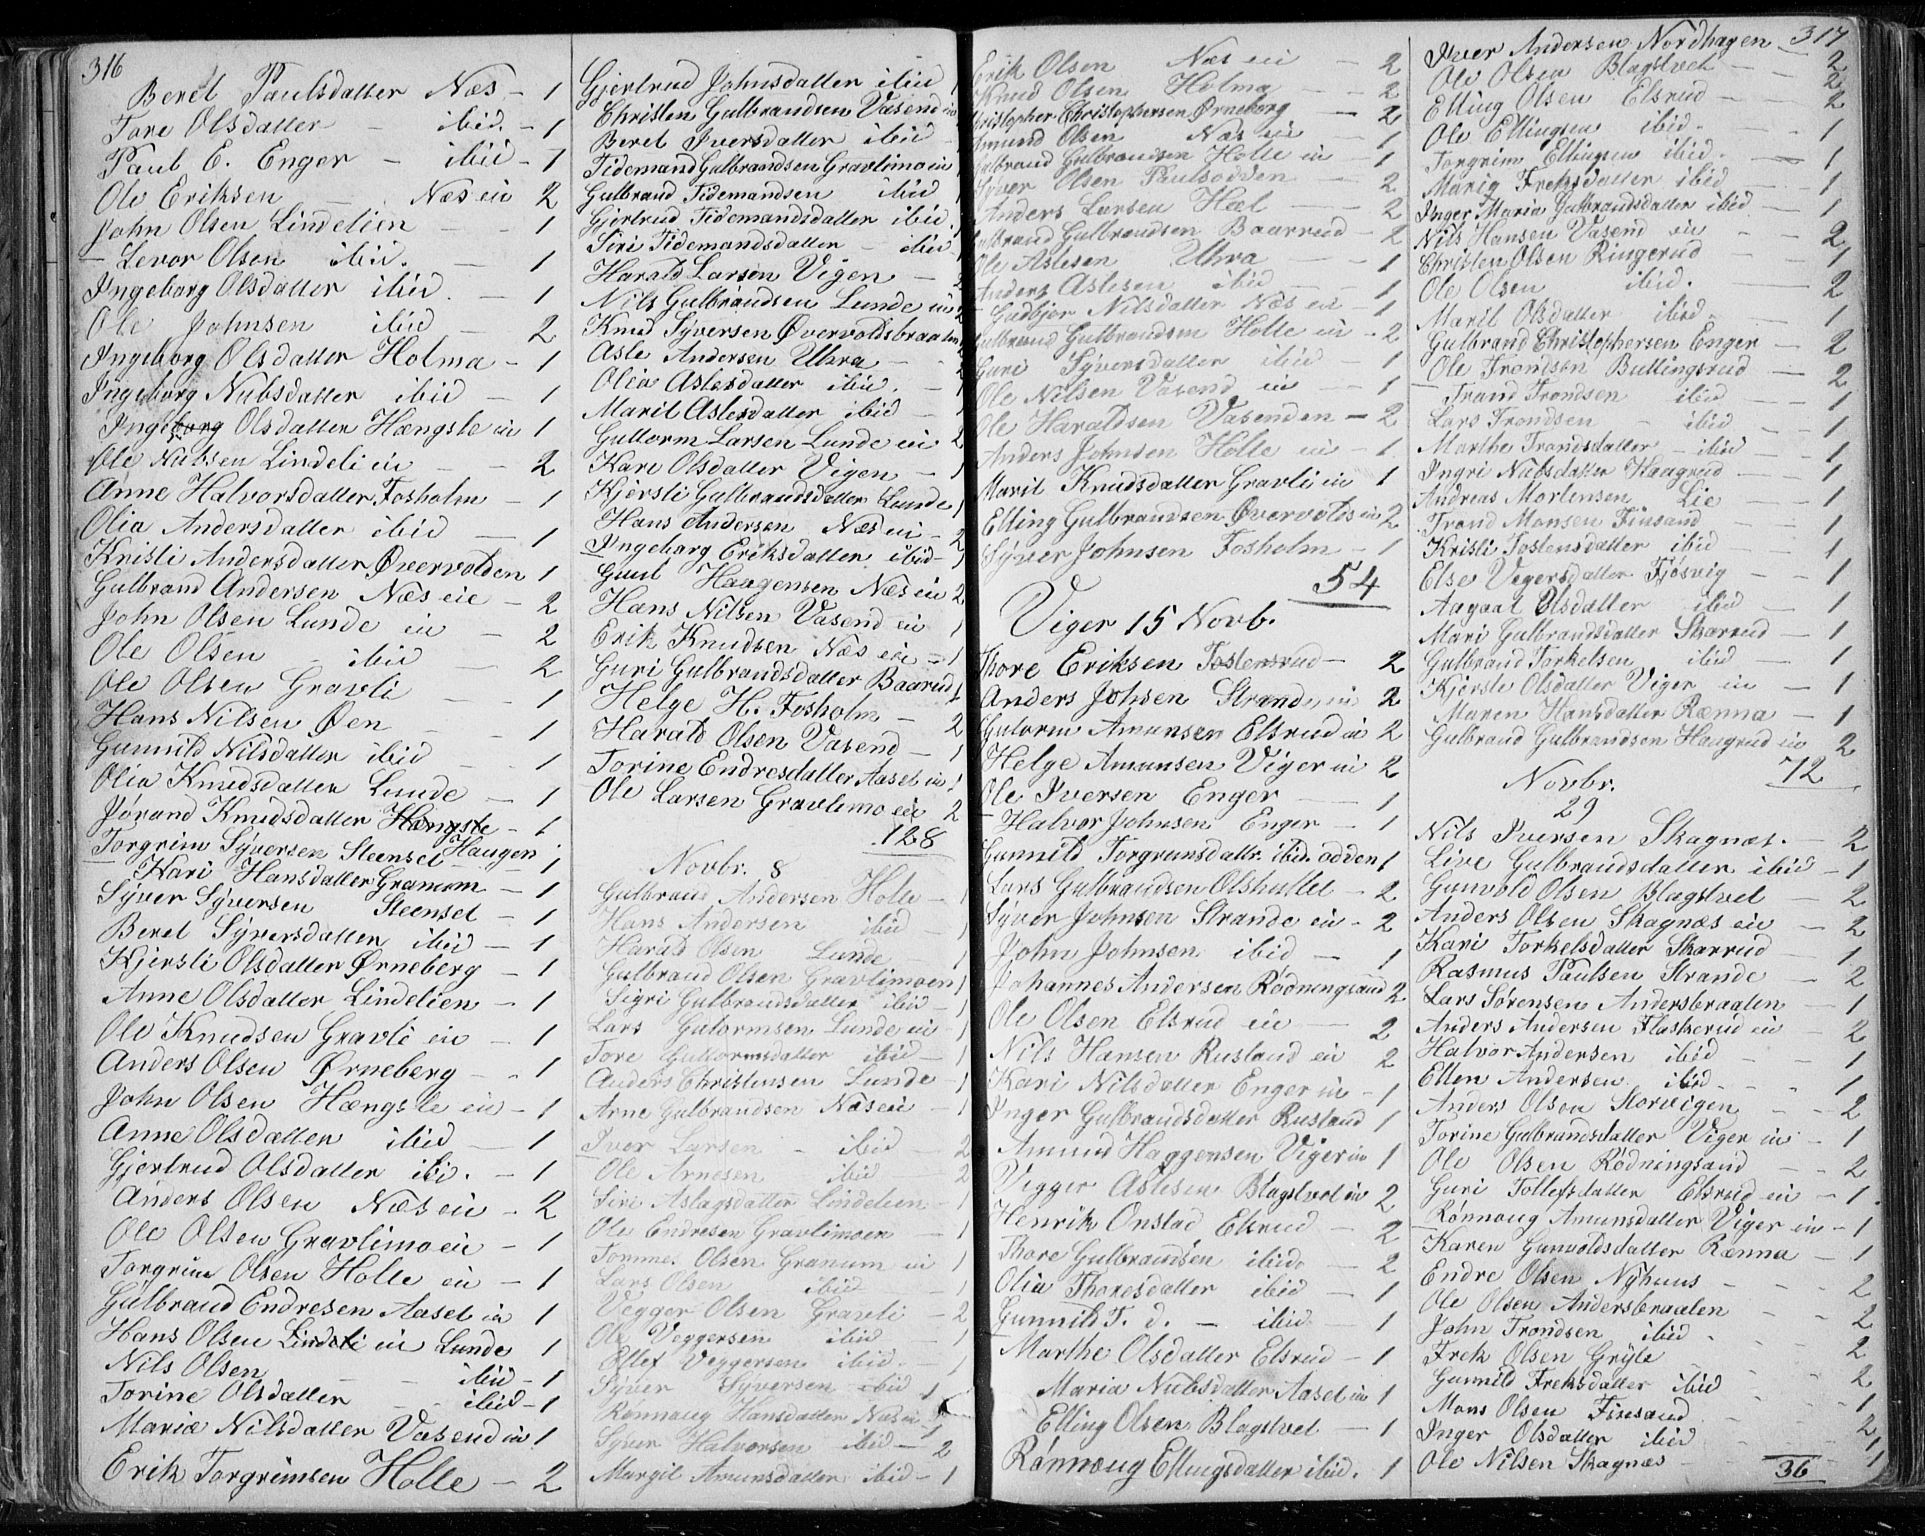 316
Beret Paulsdatter Næs - 1
Tore Olsdatter - ibid. - 1
Paul E. Enger - ibid - 1
Ole Eriksen Næs eie 2
John Olsen Lindelien - 1
Levor Olsen ibid. - 1
Ingeborg Olsdatter ibid. - 1
Ole Johnsen ibid - 2
Ingeborg Olsdatter Holma - 1
Ingeborg Nubsdatter ibid - 1
Ingeborg Olsdatter Hængsle ei 1
Ole Nubsen Lindeli eie - 2
Anne Halvorsdatter Fosholm - 1
Olia Andersdatter ibid - 1
Kristi Andersdatter Øvervolden 1
Gulbrand Andersen Næs eie - 2
John Olsen Lunde ei - 2
Ole Olsen ibid - 2
Ole Olsen Gravli - 1
Hans Nilsen Øen - 1
Gunnild Nilsdatter ibid - 1
Olia Knudsdatter Lunde - 1
Jørand Knudsdatter Hængsle - 1
Torgrim Syversen Steenset Haugen 1
Kari Hansdatter Granum - 1
Syver Syversen Steenset - 1
Beret Syversdatter ibid - 1
Kjersti Olsdatter Ørneberg - 1
Anne Olsdatter Lindelien - 1
Ole Knudsen Gravli ein - 1
Anders Olsen Ørneberg - 1
John Olsen Hængsle ein - 1
Anne Olsdatter ibid - 1
Gjertrud Olsdatter ibi. - 1
Anders Olsen Næs eie - 2
Ole Olsen Gravlimo eie - 1
Torgrim Olsen Holle ein - 1
Gulbrand Endresen Aaset ei 1
Hans Olsen Lindeli ei Lunde 1
Nils Olsen - ibid - 1
Torine Olsdatter - ibid - 1
Maria Nilsdatter Vasend ei 1
Erik Torgrimsen Holle - 2
Gjertrud Johnsdatter ibid 1
Christen Gulbrandsen Vasend ei
Beret Iversdatter ibid - 1
Tidemand Gulbrandsen Gravlimo ei
Gulbrand Tidemandsen ibid
Gjertrud Tidemandsdatter ibid. 1
Siri Tidemandsdatter - ibid
Harald Larsen Vigen - 2
Nils Gulbrandsen Lunde ei 2
Knud Syversen Øvervoldsbraaten
Asle Andersen Uhra
Olia Aslesdatter ibid. - 1
Marit Aslesdatter ibid - 1
Guttorm Larsen Lunde ei 2
Kari Olsdatter Vigen - 1
Kjersti Gulbrandsdatter Lunde 1
Hans Andersen Næs ei - 2
Ingeborg Eriksdatter ibid - 1
Guul Haagensen Næs ei 2
Hans Nilsen Vasend ei 1
Erik Knudsen Næs eie - 1
Guri Gulbrandsdatter Baarud 1
Helge H. Fosholm - 2
Harald Olsen Vasend - 1
Torine Endresdatter Aaset ei 1
Ole Larsen Gravlimo eie 2
128
Novbr. 8
Gulbrand Andersen Holle - 1
Hans Andersen ibid - 1
Harald Olsen Lunde 1
Gulbrand Olsen Gravlimoen 1
Sigri Gulbrandsdatter ibid - 1
Lars Gutormsen Lunde ei - 1
Tore Guttormsdatter ibid - 1
Anders Christensen Lunde - 1
Arne Gulbrandsen Næs eie - 1
Iver Larsen - ibid - 2
Ole Arnesen - ibid 2
Siri Aslagsdatter Lindelien - 1
Ole Endresen Gravlimoen - 1
Tomme Olsen Granum ei 1
Lars Olsen ibid - 1
Vegger Olsen Gravli - 2
Ole Veggersen ibid - 1
Ellef Veggersen ibid 1
Syver Syversen ibid 1
Rønnaug Hansdatter Næs ei
Syver Halvorsen ibid - 2
Margit Amunsdatter ibid - 1
Erik Olsen Næs ei - 2
Knud Olsen Holma - 2
Christopher Christophersen Ørneberg - 2
Amund Olsen Næs ei - 1
Gulbrand Gulbrandsen Holle ei - 1
Syver Olsen Paulsodden - 2
Anders Larsen Hæl - 2
Gulbrand Gulbrandsen Baarrud - 2
Ole Aslesen Uhra - 1
Anders Aslesen ibid - 1
Gudbjør Nilsdatter Næs ei - 1
Gulbrand Gulbrandsen Holle ei - 2
Guri Syversdatter ibid - 1
Ole Nilsen Vasend ei - 1
Ole Haraldsen Vasenden - 2
Anders Johnsen Holle ei - 1
Marit Knudsdatter Gravli ei 1
Elling Gulbrandsen Øvervolds ei 2
Syver Johnsen Fosholm - 1
54
Viger 15 Novb.
Thore Eriksen Tostensrud - 2
Anders Johsen Strande ei 2
Gutorm Amunsen Elsrud ei 2
Helge Amunsen Viger ei 2
Ole Iversen Enger - 1
Halvor Johnsen Enger - 1
Gunnild Torgrimsdatr. ibid. odden 1
Lars Gulbrandsen Olshullet - 2
Syver Johnsen Strande ei - 2
John Johnsen ibid - 1
Johannes Andersen Rødningsand 2
Ole Olsen Elsrud ei - 2
Nils Hansen Rustand ei 2
Kari Nilsdatter Enger ei - 1
Inger Gulbrandsdatter Rustand 1
Amund Haggensen Viger ei 1
Vigger Aslesen Blagstvet ei 2
Henrik Onstad Elsrud - 2
Thore Gulbrandsen ibid. - 2
Olia Thoresdatter ibid - 1
Gunnild T. d. - ibid - 1
Marthe Olsdatter Elsrud - 1
Maria Nubsdatter Aaset ei 1
Elling Olsen Blagstvet - 1
Rønnoug Ellingsdatter ibid. 1
317
Iver Andersen Nordhagen - 2
Ole Olsen Blagstvet - 2
Elling Olsen Elsrud - 2
Ole Ellingsen ibid. - 1
Torgrim Ellingsen ibid. - 1
Marig Freksdatter ibid - 1
Inger Maria Gulbrandsdatter ibid - 1
Nils Hansen Vasend ei - 2
Christen Olsen Ringerud - 1
Ole Olsen ibid. - 2
Marit Olsdatter ibid. - 1
Gulbrand Christophersen Enger - 2
Ole Trondsen Bullingsrud - 2
Trond Trondsen ibid - 1
Lars Trondsen - ibid - 1
Marthe Trondsdatter - ibid - 1
Ingri Nilsdatter Haagrud - 1
Andreas Mortensen Lie - 1
Trond Monsen Finsand - 1
Kristi Tostensdatter ibid - 1
Else Vegersdatter Fjøsvig - 1
Aagaat Olsdatter ibid - 1
Mari Gulbrandsdatter Skarrud - 1
Gulbrand Torkelsen ibid - 1
Kjersti Olsdatter Viger ei - 1
Maren Hansdatter Rænna - 1
Gulbrand Gulbrandsen Haugrud ei 2
72
Novbr.
29
Nils Iversen Skagnæs. - 2
Live Gulbrandsdatter ibid - 1
Gunvold Olsen Blagstvet - 2
Anders Olsen Skagnæs eie - 2
Kari Torkelsdatter Skarrud - 1
Rasmus Paulsen Strande - 2
Lars Sørensen Andersbraaten - 1
Anders Andersen Flaskerud ei - 2
Halvor Andersen ibid - 1
Ellen Andersen ibid. - 1
Anders Olsen Storvigen - 2
Torine Gulbrandsdatter Viger ei - 1
Ole Olsen Rødningsand - 2
Guri Tollefsdatter Elsrud ei - 1
Rønnoug Amunsdatter Viger ei - 1
Karen Gunvoldsdatter Rænna - 1
Endre Olsen Nyhuus - 2
Ole Olsen Andersbraaten - 2
John Trondsen ibid - 2
Frek Olsen Gryte - 2
Gunnild Freksdatter ibid - 1
Mons Olsen Finsand - 2
Inger Olsdatter ibid - 1
Ole Nilsen Skagnæs - 1
36